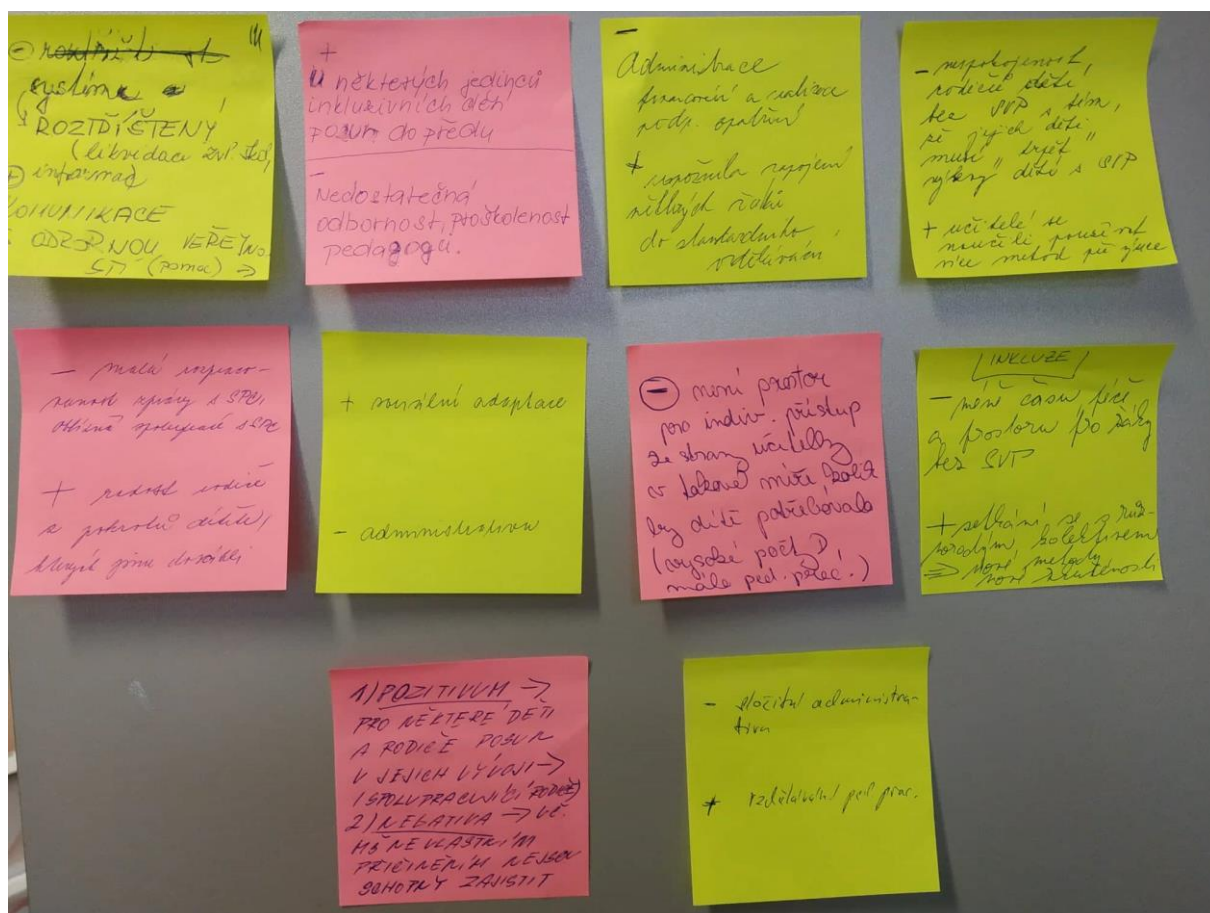 ⊖
systému
ROZTŘÍŠTENÝ
(likvidace zvl. škol)
⊕ informad
KOMUNIKACE
ODBORNOU VEŘEJNO-
STÍ (pomoc) →
+
U některých jedinců
inkluzivních dětí
posun do předu
-
Nedostatečná
odbornost, proškolenost
pedagogů.
-
Administrace
financování a realizace
podp. opatření
+ umožnila zapojení
některých žáků
do standardního
vzdělávání
- nespokojenost
rodičů dětí
bez SVP s tím,
že jejich děti
musí "trpět"
výkyvy dětí s SVP
+ učitelé se
naučili používat
více metod při výuce
- malá
zprávy z SPC,
spolupráce s SPC
+ radost rodičů
z pokroků dítěte,
kterých jsme dosáhli
+ sociální adaptace
- administrativa
⊖ není prostor
pro indiv. přístup
ze strany učitelky
v takové míře, kolik
by dítě potřebovalo
(vysoké počty D
málo ped. prac.!)
INKLUZE
- méně času, péče
a prostoru pro žáky
bez SVP
+ setkání se s růz-
norodým kolektivem
⇒ nové metody
nové zkušenosti
1) POZITIVUM →
PRO NĚKTERÉ DĚTI
A RODIČE POSUN
V JEJICH VÝVOJI →
(SPOLUPRACUJÍCÍ RODIČE)
2) NEGATIVA → UČ.
MŠ NEVLASTNÍM
PŘIČINĚNÍM NEJSOU
SCHOPNY ZAJISTIT
- složitá administra-
tiva
+ vzdělávání ped. prac.